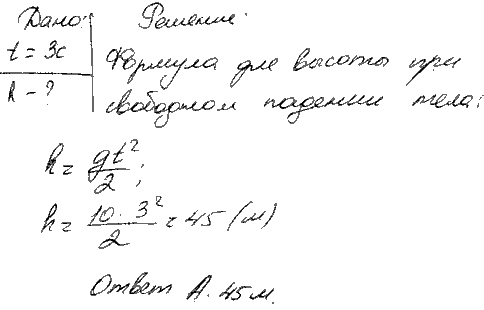 Дано: Решение:
t = 3с
h - ?
Формула для высоты при
свободном падении тела:
h = gt²/2;
h = 10 · 3²/2 = 45 (м)
Ответ А. 45 м.